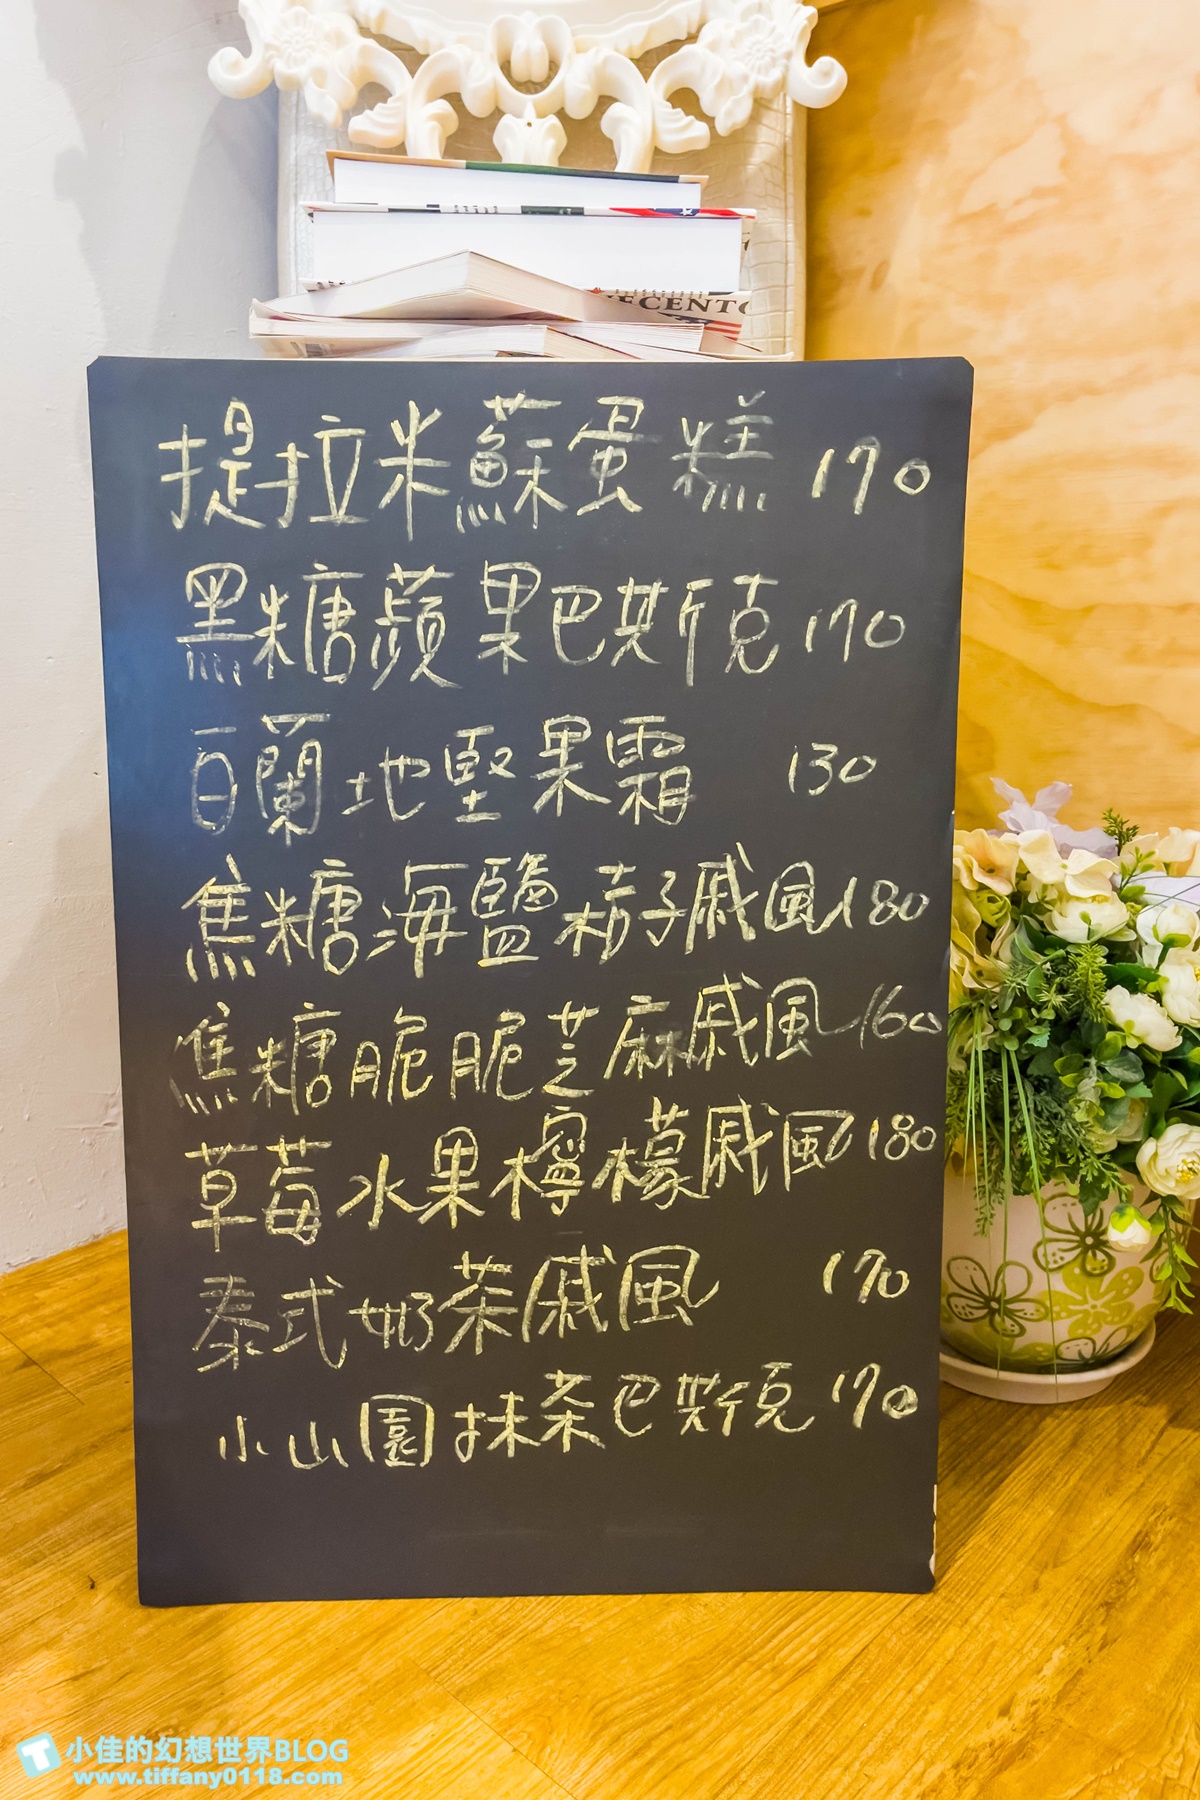 ECENTO
提拉米蘇蛋糕 170
黑糖蘋果巴斯克 170
百蘭地堅果霜 130
焦糖海鹽桔子戚風 180
焦糖脆脆芝麻戚風 160
草莓水果檸檬戚風 180
泰式奶茶戚風 170
小山園抹茶巴斯克 170
T 小佳的幻想世界BLOG
www.tiffany0118.com